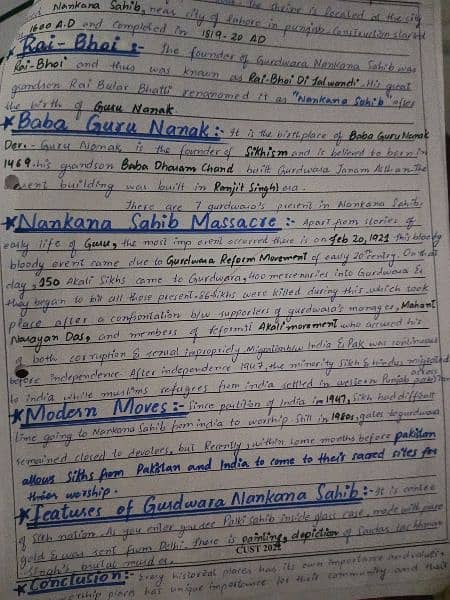 Nankana Sahib, near city of Lahore in punjab. Construction started
1600 A.D and completed in 1819-20 AD
Rai-Bhoi :- The founder of Gurdwara Nankana Sahib was
Rai-Bhoi and thus was known as Rai-Bhoi Di Talwandi. His great
grandson Rai Bular Bhatti renamed it as "Nankana Sahib" after
the birth of Guru Nanak
*Baba Guru Nanak:- It is the birthplace of Baba Guru Nanak
Dev. Guru Nanak is the founder of Sikhism and is believed to born in
1469. his grandson Baba Dharam Chand built Gurdwara Janam Asthan. The
building was built in Ranjit Singh era.
There are 7 gurdwara's present in Nankana Sahib.
*Nankana Sahib Massacre:- Apart from stories of
early life of Guru, the most imp event occurred there is on Feb 20, 1921 this bloody
bloody event came due to Gurdwara Reform Movement of early 20th entry. On that
day, 150 Akali Sikhs came to Gurdwara, 400 mercenaries into Gurdwara &
they began to hit all those present. 86 sikhs were killed during this which took
place after a confrontation b/w supporters of gurdwara's manager, Mahant
Narayan Das, and members of reformist Akali movement who accused his
of both corruption & sexual impropriety. Migration b/w India & Pak was continuous
before independence. After independence 1947, the minority Sikh & hindus migrated
to india while muslims refugees from india settled in western Punjab
*Modern Moves:- Since partition of India in 1947, Sikh had difficult
time going to Nankana Sahib from india to worship still in 1980s, gates to gurdwara
remained closed to devotees, but Recently, within some months before pakistan
allows Sikhs from Pakistan and India to come to their sacred sites for
their worship.
*Features of Gurdwara Nankana Sahib:- It is centre
of Sikh nation. As you enter you see Palki Sahib inside glass case, made with pure
gold & was sent from Delhi. There is painting, depiction of Sardar Lachhman
Singh's brutal murder.
CUST 202
*Conclusion:- Every historical places has its own importance and value.
worship place has unique importance for their community and that